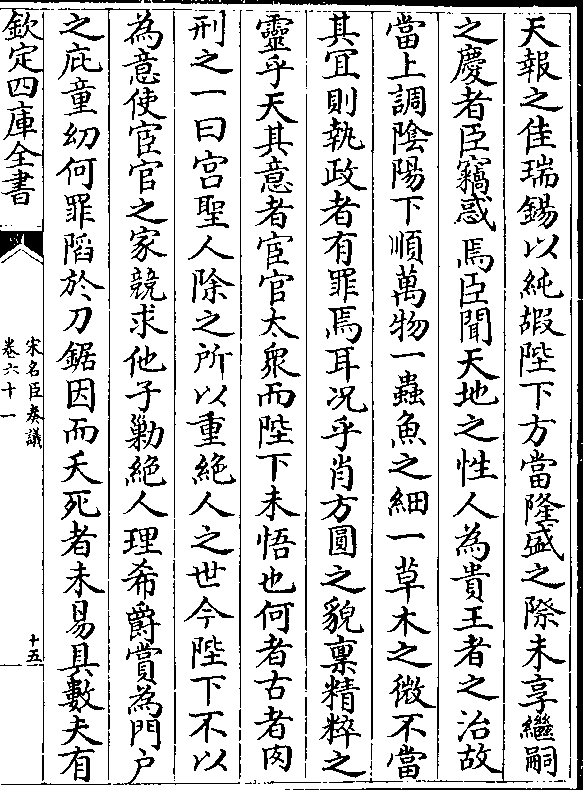 天報之佳瑞錫以純嘏陛下方當隆盛之際未享繼嗣
之慶者臣竊惑焉臣聞天地之性人為貴王者之治故
當上調陰陽下順萬物一蟲魚之細一草木之微不當
其宜則執政者有罪焉耳況乎肖方圓之貌稟精粹之
靈乎天其意者宦官太衆而陛下未悟也何者古者肉
刑之一曰宮聖人除之所以重絕人之世今陛下不以
為意使宦官之家競求他子勦絕人理希爵賞為門户
之庇童幼何罪陷於刀鋸因而夭死者未易具數夫有
欽定四庫全書
宋名臣奏議
卷六十一
十五